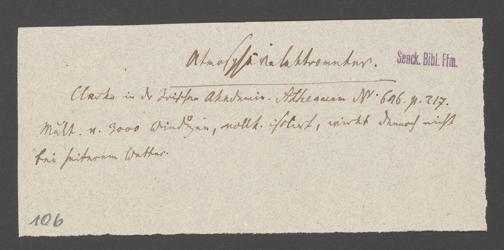 Atmosphärelektrometer.
Senck. Bibl. Ffm.
Clarke in der Irischen Akademie. Athenaeum Nr. 696. p. 217.
Mult. v. 3000 Windungen, vollk. isolirt, wirkt dennoch nicht
bei heiterem Wetter.
106